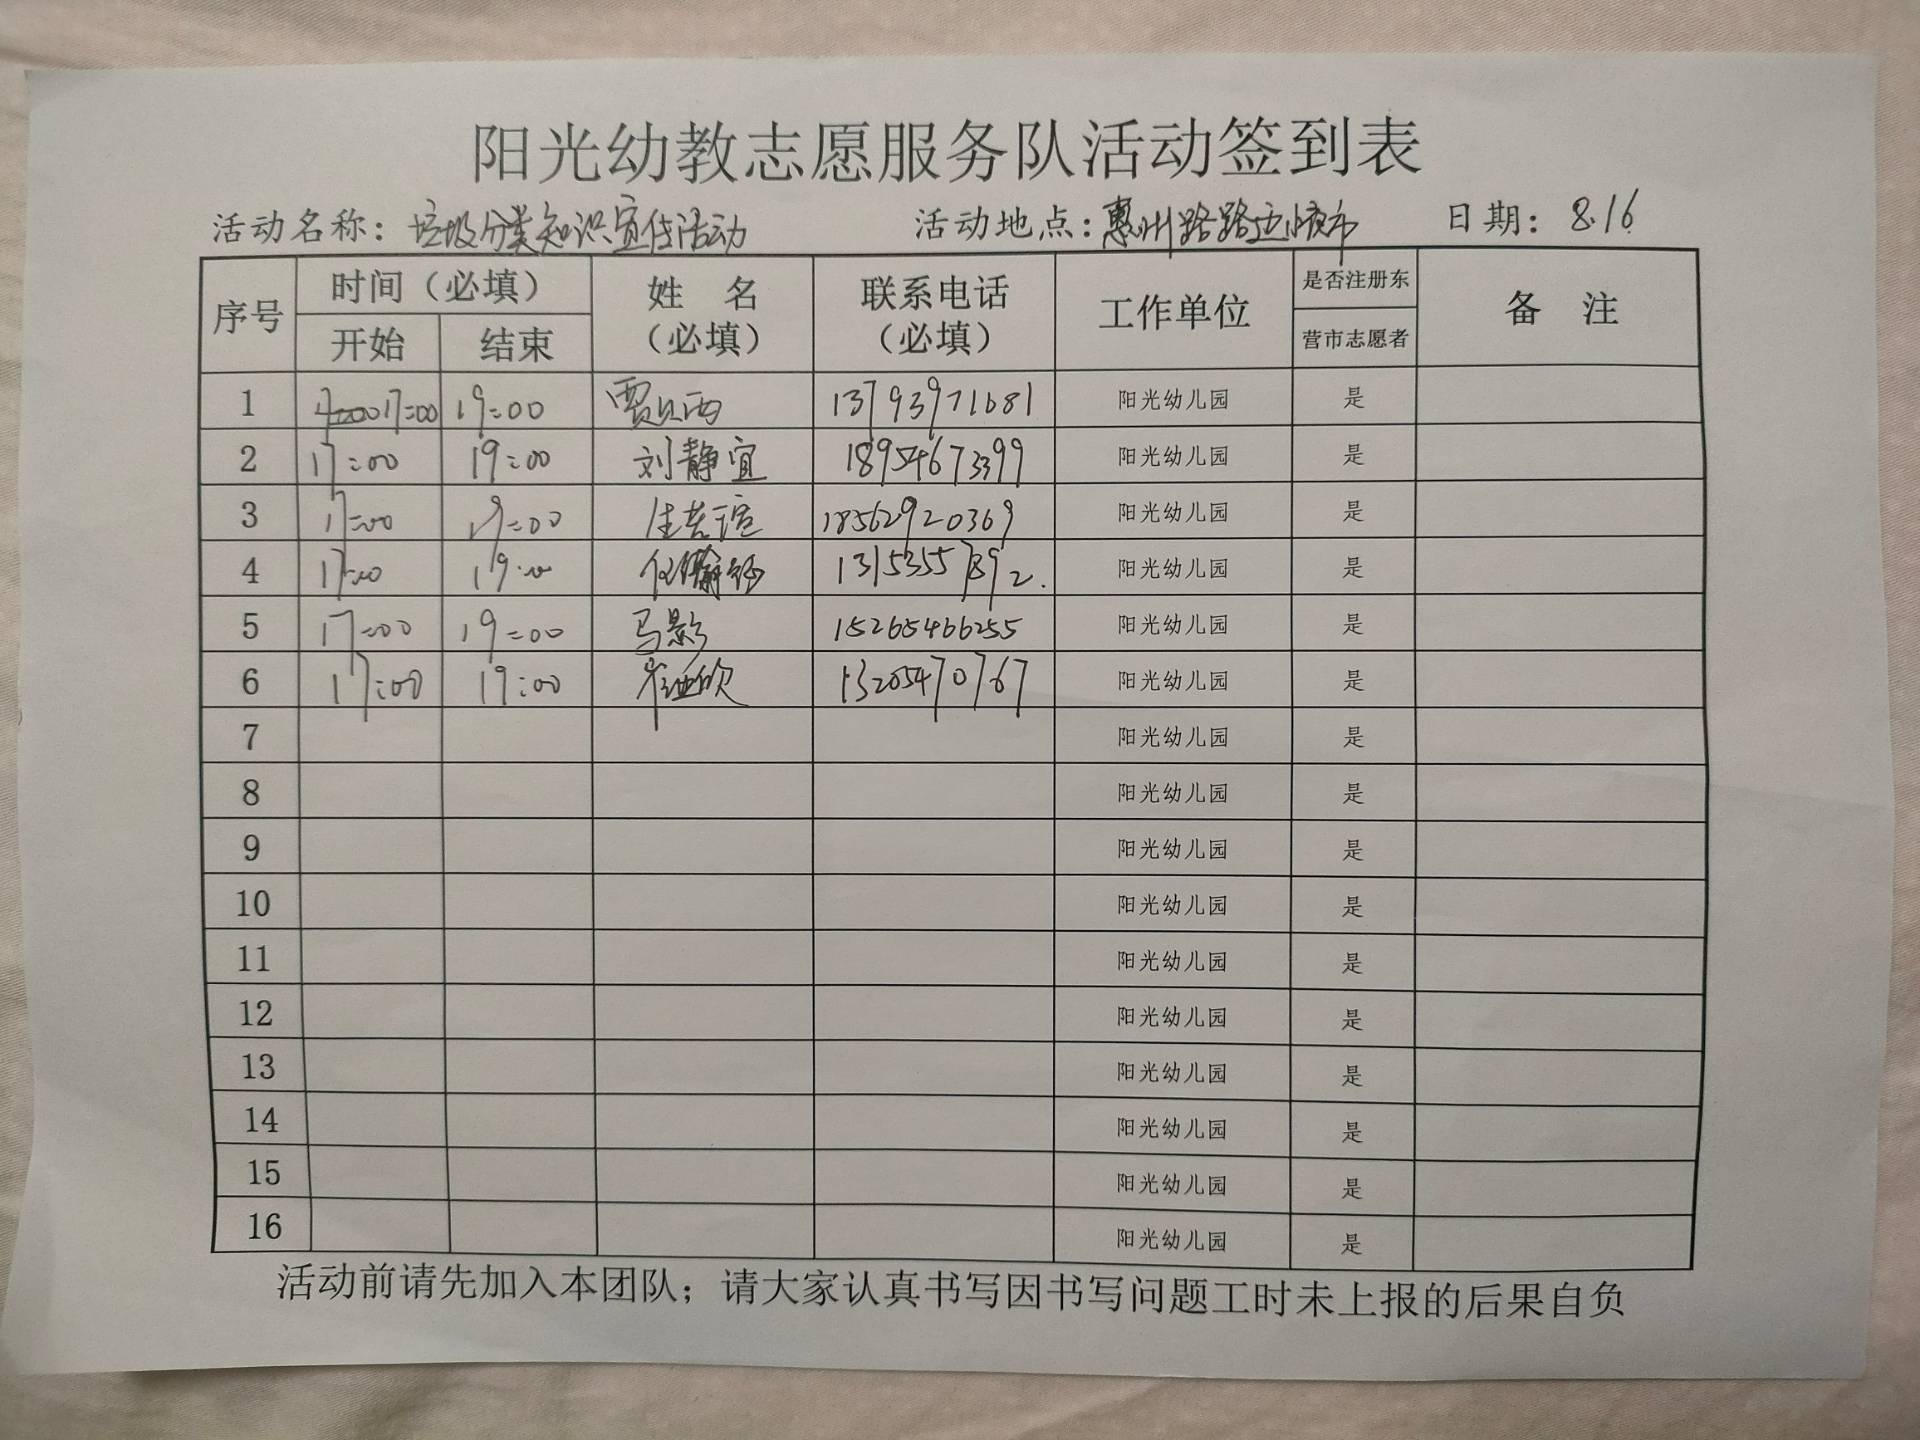 阳光幼教志愿服务队活动签到表
活动名称：垃圾分类知识宣传活动 活动地点：惠州路路边夜市 日期：8.16
序号 时间（必填） 姓 名（必填） 联系电话（必填） 工作单位 是否注册东营市志愿者 备 注
开始 结束
1 17:00 19:00 贾贝西 13793971681 阳光幼儿园 是
2 17:00 19:00 刘静宜 18954673399 阳光幼儿园 是
3 17:00 19:00 18562920369 阳光幼儿园 是
4 17:00 19:00 13153557892. 阳光幼儿园 是
5 17:00 19:00 马影 15265466255 阳光幼儿园 是
6 17:00 19:00 13205470767 阳光幼儿园 是
7 阳光幼儿园 是
8 阳光幼儿园 是
9 阳光幼儿园 是
10 阳光幼儿园 是
11 阳光幼儿园 是
12 阳光幼儿园 是
13 阳光幼儿园 是
14 阳光幼儿园 是
15 阳光幼儿园 是
16 阳光幼儿园 是
活动前请先加入本团队；请大家认真书写因书写问题工时未上报的后果自负